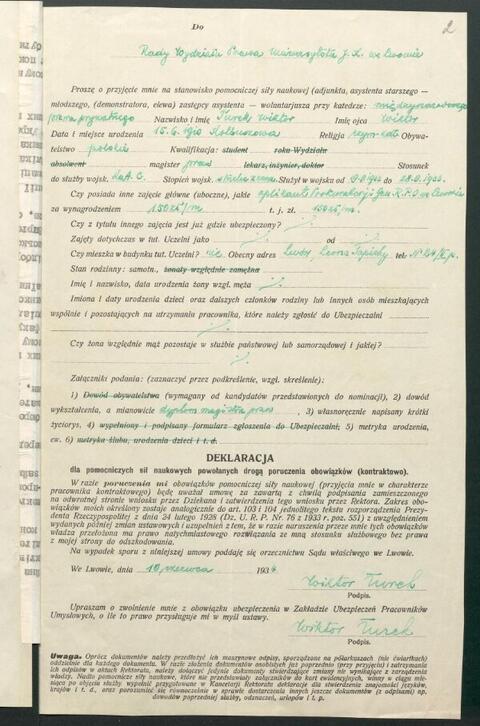 2
Do
Rady Wydziału Prawa Uniwersytetu J. K. we Lwowie
Proszę o przyjęcie mnie na stanowisko pomocniczej siły naukowej (adjunkta, asystenta starszego —
młodszego, (demonstratora, elewa) zastępcy asystenta — wolontarjusza przy katedrze: międzynarodowego
prawa prywatnego Nazwisko i imię Turek Wiktor Imię ojca Wiktor
Data i miejsce urodzenia 15.6.1910 Kolbuszowa Religja rzym-kat Obywa-
telstwo polskie Kwalifikacja: student roku Wydziału
absolwent magister praw lekarz, inżynier, doktor Stosunek
do służby wojsk. Kat. C. Stopień wojsk. Służył w wojsku od do
Czy posiada inne zajęcie główne (uboczne), jakie aplikant Prokuratorji Gen. R.P.O. we Lwowie
za wynagrodzeniem 150 zł/m t. j. zł. 150 zł/m.
Czy z tytułu innego zajęcia jest już gdzie ubezpieczony?
Zajęty dotychczas w tut. Uczelni jako od
Czy mieszka w budynku tut. Uczelni? nie Obecny adres Lwów, Leona Sapiehy tel.
Stan rodzinny: samotn., żonaty względnie zamężna
Imię i nazwisko, data urodzenia żony wzgl. męża
Imiona i daty urodzenia dzieci oraz dalszych członków rodziny lub innych osób mieszkających
wspólnie i pozostających na utrzymaniu pracownika, które należy zgłosić do Ubezpieczalni
Czy żona względnie mąż pozostaje w służbie państwowej lub samorządowej i jakiej?
Załączniki podania: (zaznaczyć przez podkreślenie, wzgl. skreślenie):
1) Dowód obywatelstwa (wymagany od kandydatów przedstawionych do nominacji), 2) dowód
wykształcenia, a mianowicie dyplom magistra praw, 3) własnoręcznie napisany krótki
życiorys, 4) wypełniony i podpisany formularz zgłoszenia do Ubezpieczalni, 5) metryka urodzenia,
ew. 6) metryka ślubu, urodzenia dzieci i t. d.
DEKLARACJA
dla pomocniczych sił naukowych powołanych drogą poruczenia obowiązków (kontraktowo).
W razie poruczenia mi obowiązków pomocniczej siły naukowej (przyjęcia mnie w charakterze
pracownika kontraktowego) będę uważał umowę za zawartą z chwilą podpisania zamieszczonego
na odwrotnej stronie wniosku przez Dziekana i zatwierdzenia tego wniosku przez Rektora. Zakres obo-
wiązków moich określony zostaje analogicznie do art. 103 i 104 jednolitego tekstu rozporządzenia Prezy-
denta Rzeczypospolitej z dnia 24 lutego 1928 (Dz. U. R. P. Nr. 76 z 1933 r. poz. 551) z uwzględnieniem
wydanych później zmian ustawowych i uzupełnień z tem, że w razie naruszenia przeze mnie tych obowiązków
władza przełożona ma prawo natychmiastowego rozwiązania ze mną stosunku służbowego bez prawa
z mojej strony do odszkodowania.
Na wypadek sporu z niniejszej umowy poddaję się orzecznictwu Sądu właściwego we Lwowie.
We Lwowie, dnia 10 czerwca 1934
Wiktor Turek
Podpis.
Upraszam o zwolnienie mnie z obowiązku ubezpieczenia w Zakładzie Ubezpieczeń Pracowników
Umysłowych, o ile to prawo przysługuje mi w myśl ustawy.
Wiktor Turek
Podpis.
Uwaga. Oprócz dokumentów należy przedłożyć ich maszynowe odpisy, sporządzone na półarkuszach (nie ćwiartkach)
oddzielnie dla każdego dokumentu. W razie złożenia dokumentów enobnych już poprzednio (przy przyjęciu) i zatrzymania
ich odpisów w aktach Rektoratu, należy dołączyć jedynie dokumenty stwierdzające zmiany nie wynikające z zarządzenia
władzy. Nadto pomocnicze siły naukowe, które nie przedstawiały załączników do kart ewidencyjnych, winny w ciągu mie-
siąca po objęciu służby wypełnić przygotowane w Kancelarji Rektoratu deklaracje na stwierdzenie znajomości języków,
krajów i t. d., oraz porozumieć się równocześnie w sprawie dostarczenia innych jeszcze dokumentów (z odpisami) np.
dowodów poprzedniej służby, odznaczeń, urlopów i t. p.